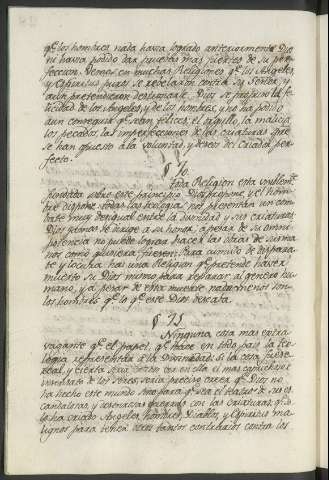 q.e los hombres nada havia logrado anteriormente Dios
ni havia podido dar pruevas mas fuertes de su per-
feccion. Vemos en muchas Religiones q.e los Angeles,
y Espiritus puros se revelaron contra su Señor, y
aun pretendieron destronarle. Dios se propuso la fe-
licidad de los Angeles, y de los hombres, y no ha podido
aun conseguir q.e sean felices, el orgullo, la malicia
los pecados, las imperfecciones de las criaturas que
se han opuesto á la voluntad, y deseos del Criador per-
fecto.
§ 70.
Toda Religion esta
fundada sobre este principio Dios propone, y el hom-
bre dispone. todas las teologias nos presentan un com-
bate muy desigual entre la Divinidad y sus criaturas.
Dios jamas se dirige a su honor, á pesar de su omni-
potencia no puede lograr hacer las obras de sus ma-
nos como quisiera fuesen. Para cumulo de dispara-
te y locura hai una Religion q.e pretende haver
muerto su Dios mismo para reparar al genero hu-
mano, y á pesar de esta muerte nada menos son
los hombres q.e lo q.e este Dios deseaba.
§ 71.
Ninguna cosa mas extra-
vagante q.e el papel, q.e hace en todo pais la teo-
logia representar á la Divinidad: si la cosa fuese
real, y cierta seria de ver en ella el mas caprichoso
insensato de los seres, seria preciso creer q.e Dios no
ha hecho este mundo sino para q.e sea el teatro de sus es-
candalosas, y guerras con las criaturas, q.e so-
lo ha criado Angeles, hombres, Diablos, y Espiritus ma-
lignos para tener otros tantos contrarios contra los